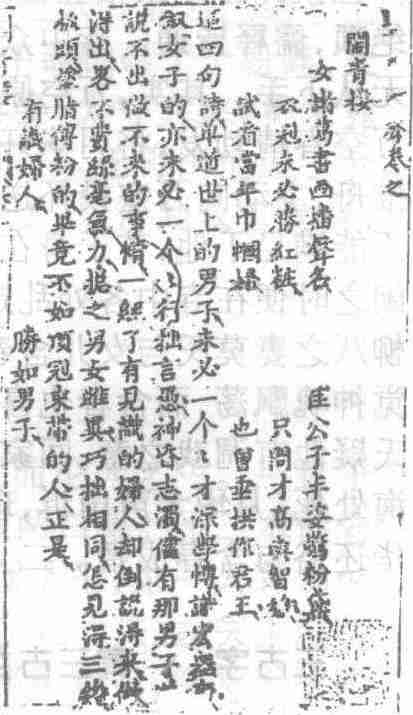 卷之
鬧青樓
女諸葛 西 聲名 公子半姿驚粉
衣冠未必勝紅粧 只問才高 智
試看當年巾幗婦 也曾垂拱作君王
這四句詩单道世上的男子未必一个〻才深學博謀宏
女子的亦未必一个〻行拙言 神 志濁儘有那男子
說不出做不來的事情一經了有見識的婦人却倒說得來做
得出畧不費絲毫氣力 之男女雖異巧拙相同怎見得三綹
梳頭塗脂傅粉的畢竟不如頂冠束帶的人正是
有識婦人 勝如男子